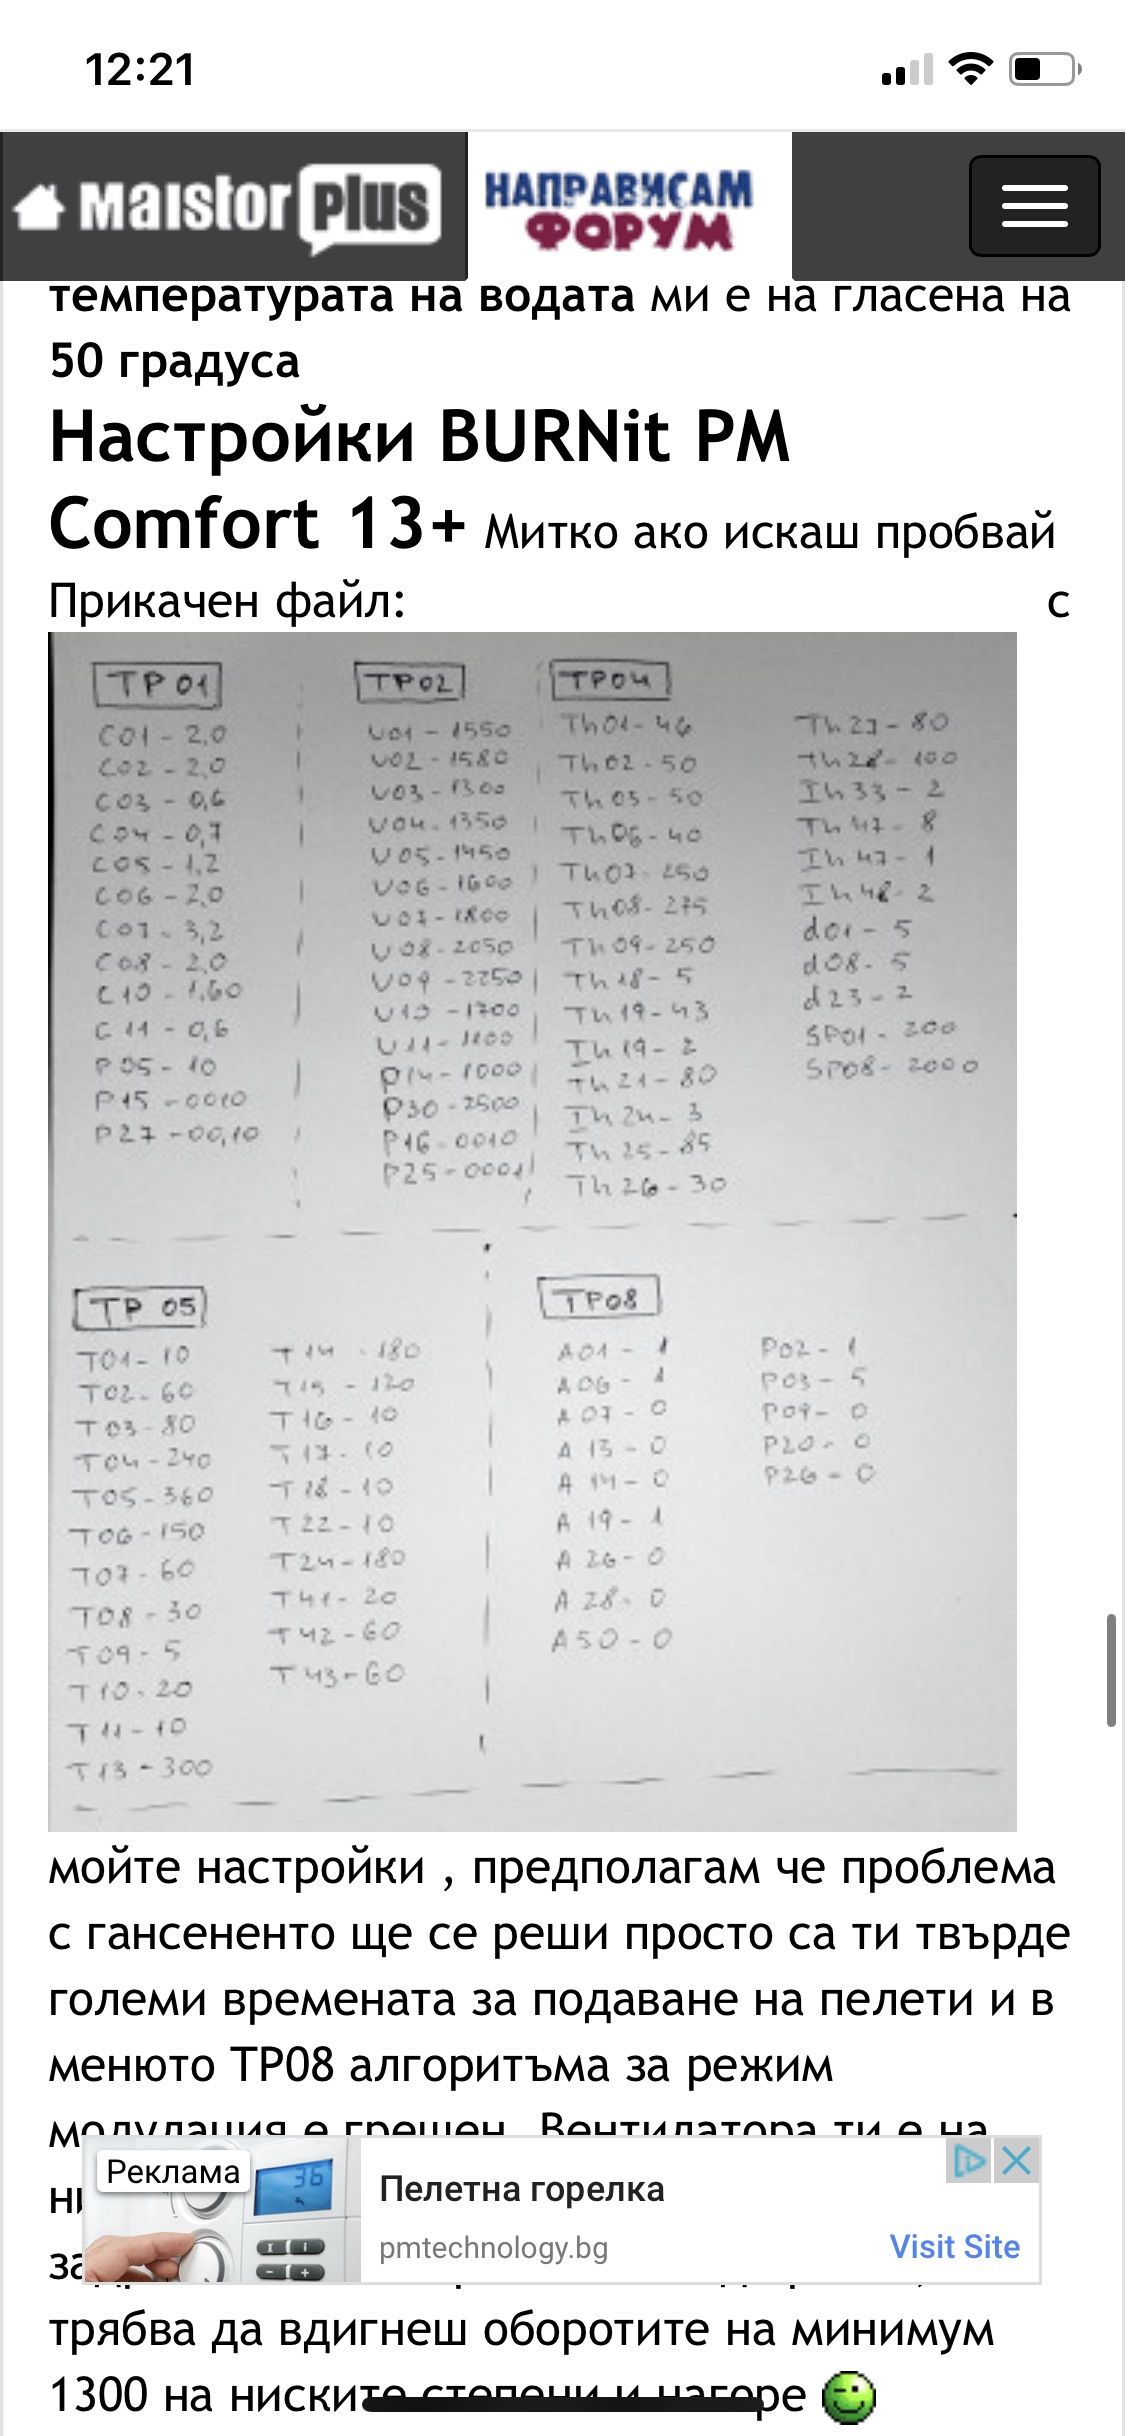 12:21
Maistor Plus
НАПРАВИСАМ
ФОРУМ
температурата на водата ми е на гласена на
50 градуса
Настройки BURNit PM
Comfort 13+ Митко ако искаш пробвай
Прикачен файл: с
TP 01
C01 - 2,0
C02 - 2,0
C03 - 0,6
C04 - 0,7
C05 - 1,2
C06 - 2,0
C07 - 3,2
C08 - 2,0
C10 - 1,60
C11 - 0,6
P05 - 10
P15 - 0010
P27 - 00,10
TP02
U01 - 1550
U02 - 1580
U03 - 1300
U04 - 1350
U05 - 1450
U06 - 1600
U07 - 1800
U08 - 2050
U09 - 2250
U10 - 1700
U11 - 1100
P14 - 1000
P30 - 2500
P16 - 0010
P25 - 0001
TP04
Th01 - 46
Th02 - 50
Th03 - 50
Th06 - 40
Th07 - 250
Th08 - 275
Th09 - 250
Th18 - 5
Th19 - 43
Ih19 - 2
Th21 - 80
Ih24 - 3
Th25 - 85
Th26 - 30
Th27 - 80
Th28 - 100
Ih33 - 2
Th47 - 8
Ih47 - 1
Ih48 - 2
d01 - 5
d08 - 5
d23 - 2
SP01 - 200
SP08 - 2000
TP 05
T01 - 10
T02 - 60
T03 - 80
T04 - 240
T05 - 360
T06 - 150
T07 - 60
T08 - 30
T09 - 5
T10 - 20
T11 - 10
T13 - 300
T14 - 180
T15 - 120
T16 - 10
T17 - 10
T18 - 10
T22 - 10
T24 - 180
T41 - 20
T42 - 60
T43 - 60
TP08
A01 - 1
A06 - 1
A07 - 0
A 13 - 0
A 14 - 0
A 19 - 1
A 26 - 0
A 28 - 0
A50 - 0
P02 - 1
P03 - 5
P09 - 0
P20 - 0
P26 - 0
мойте настройки , предполагам че проблема
с гансененто ще се реши просто са ти твърде
големи времената за подаване на пелети и в
менюто TP08 алгоритъма за режим
модулация е грешен. Вентилатора ти е на
Реклама
36
Пелетна горелка
pmtechnology.bg
Visit Site
трябва да вдигнеш оборотите на минимум
1300 на ниските степени и нагоре